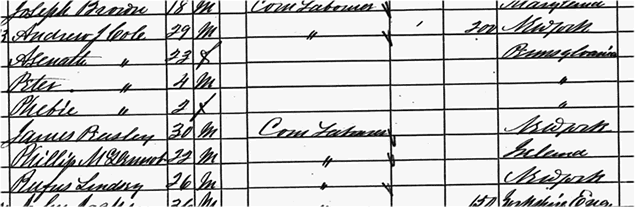 Joseph Brown 18 M Com Laborer Maryland
Andrew J Cole 29 M " 200 New York
Asenath " 23 f Pennsylvania
Peter " 4 M "
Phebie " 2 f "
James 30 M Com Laborer New York
Phillip 22 M " Ireland
Rufus Lindsy 26 M " New York
150